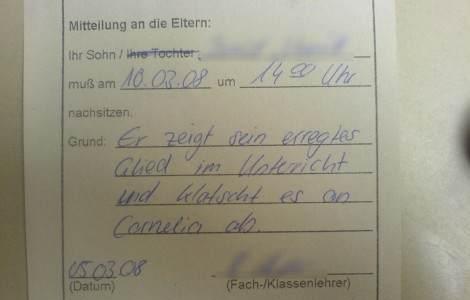 Mitteilung an die Eltern:
Ihr Sohn / Ihre Tochter
muß am 10.03.08 um 14 00 Uhr
nachsitzen.
Grund: Er zeigt sein erregtes
Glied im Unterricht
und klatscht es an
Cornelia ab.
05.03.08
(Datum) (Fach-/Klassenlehrer)